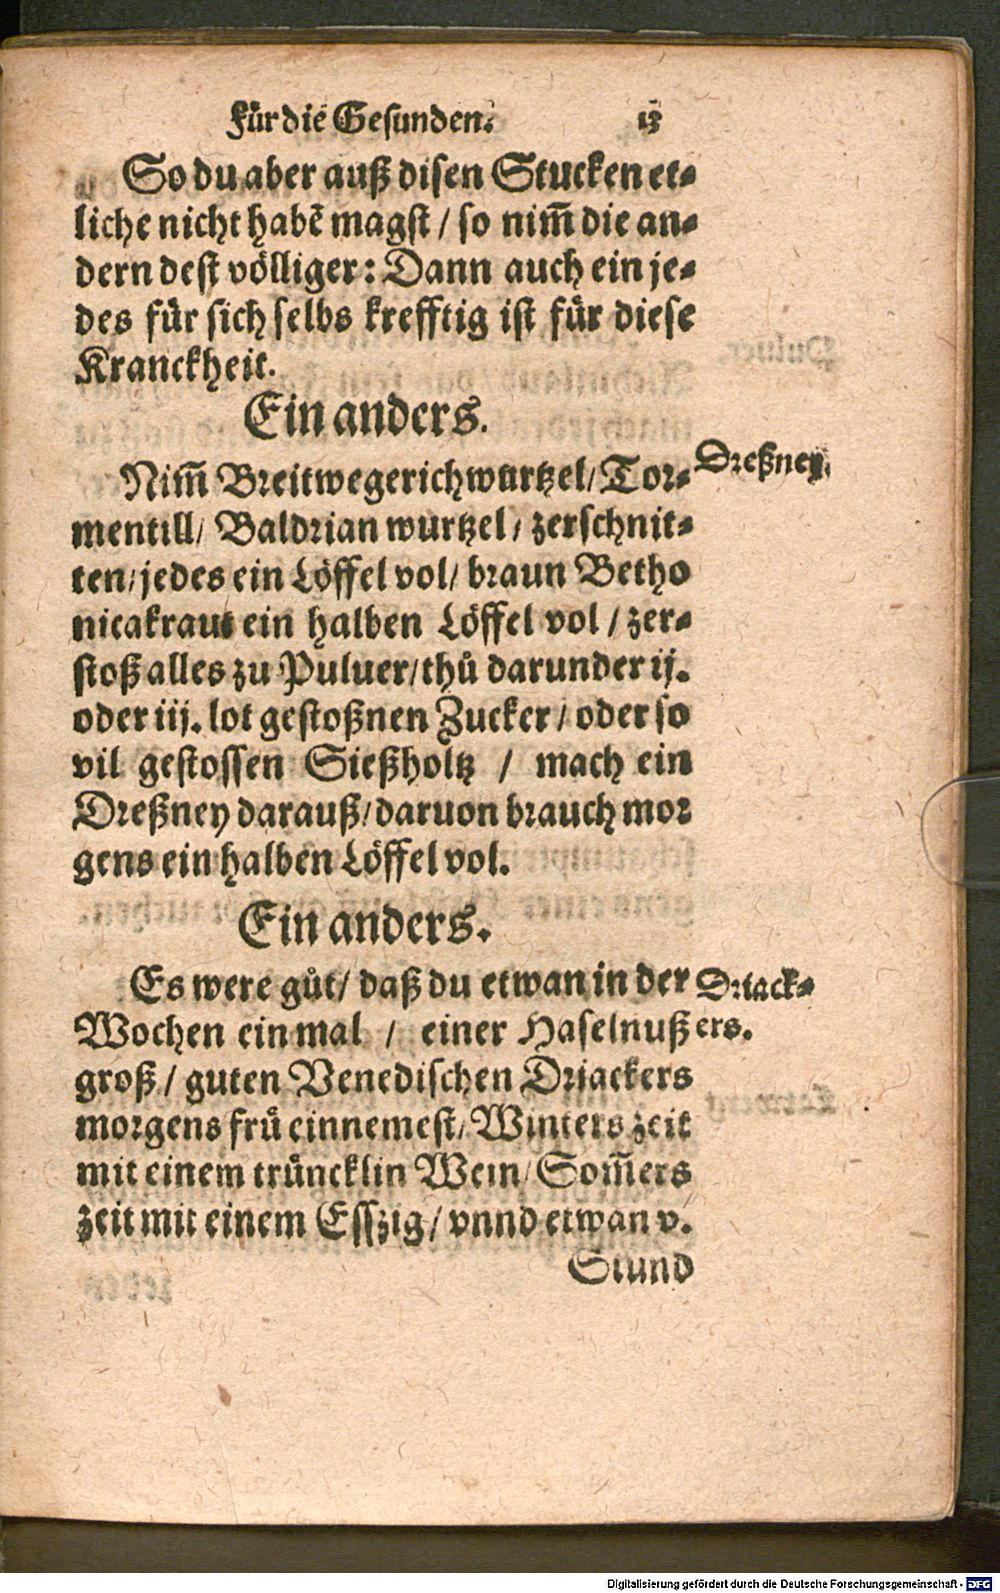 Für die Gesunden. 13
So du aber auß disen Stucken et-
liche nicht habē magst / so nim̄ die an-
dern dest völliger: Dann auch ein je-
des für sich selbs krefftig ist für diese
Kranckheit.
Ein anders.
Nim̄ Breitwegerichwurtzel/ Tor-
Dreßney.
mentill/ Baldrian wurtzel/ zerschnit-
ten/ jedes ein Löffel vol/ braun Betho
nicakraut ein halben Löffel vol / zer-
stoß alles zu Puluer/ thů darunder ij.
oder iij. lot gestoßnen Zucker / oder so
vil gestossen Sießholtz / mach ein
Dreßney darauß/ daruon brauch mor
gens ein halben Löffel vol.
Ein anders.
Es were gůt/ daß du etwan in der
Driack-
Wochen ein mal / einer Haselnuß
ers.
groß / guten Venedischen Driackers
morgens frů einnemest/ Winters zeit
mit einem trüncklin Wein/ Som̄ers
zeit mit einem Esszig/ vnnd etwan v.
Stund
Digitalisierung gefördert durch die Deutsche Forschungsgemeinschaft - DFG